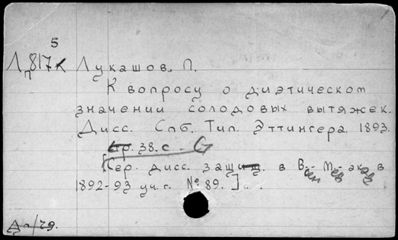 5
Л 817к Лукашов, П.
К вопросу о диэтическом
значении солодовых вытяжек.
Дисс. Спб. Тип. Эттингера 1893.
стр. 38.с.
[Сер. дисс. защищ. в Воен.-Мед.-акад в
1892-93 уч.г. № 89.]
Дп/79.